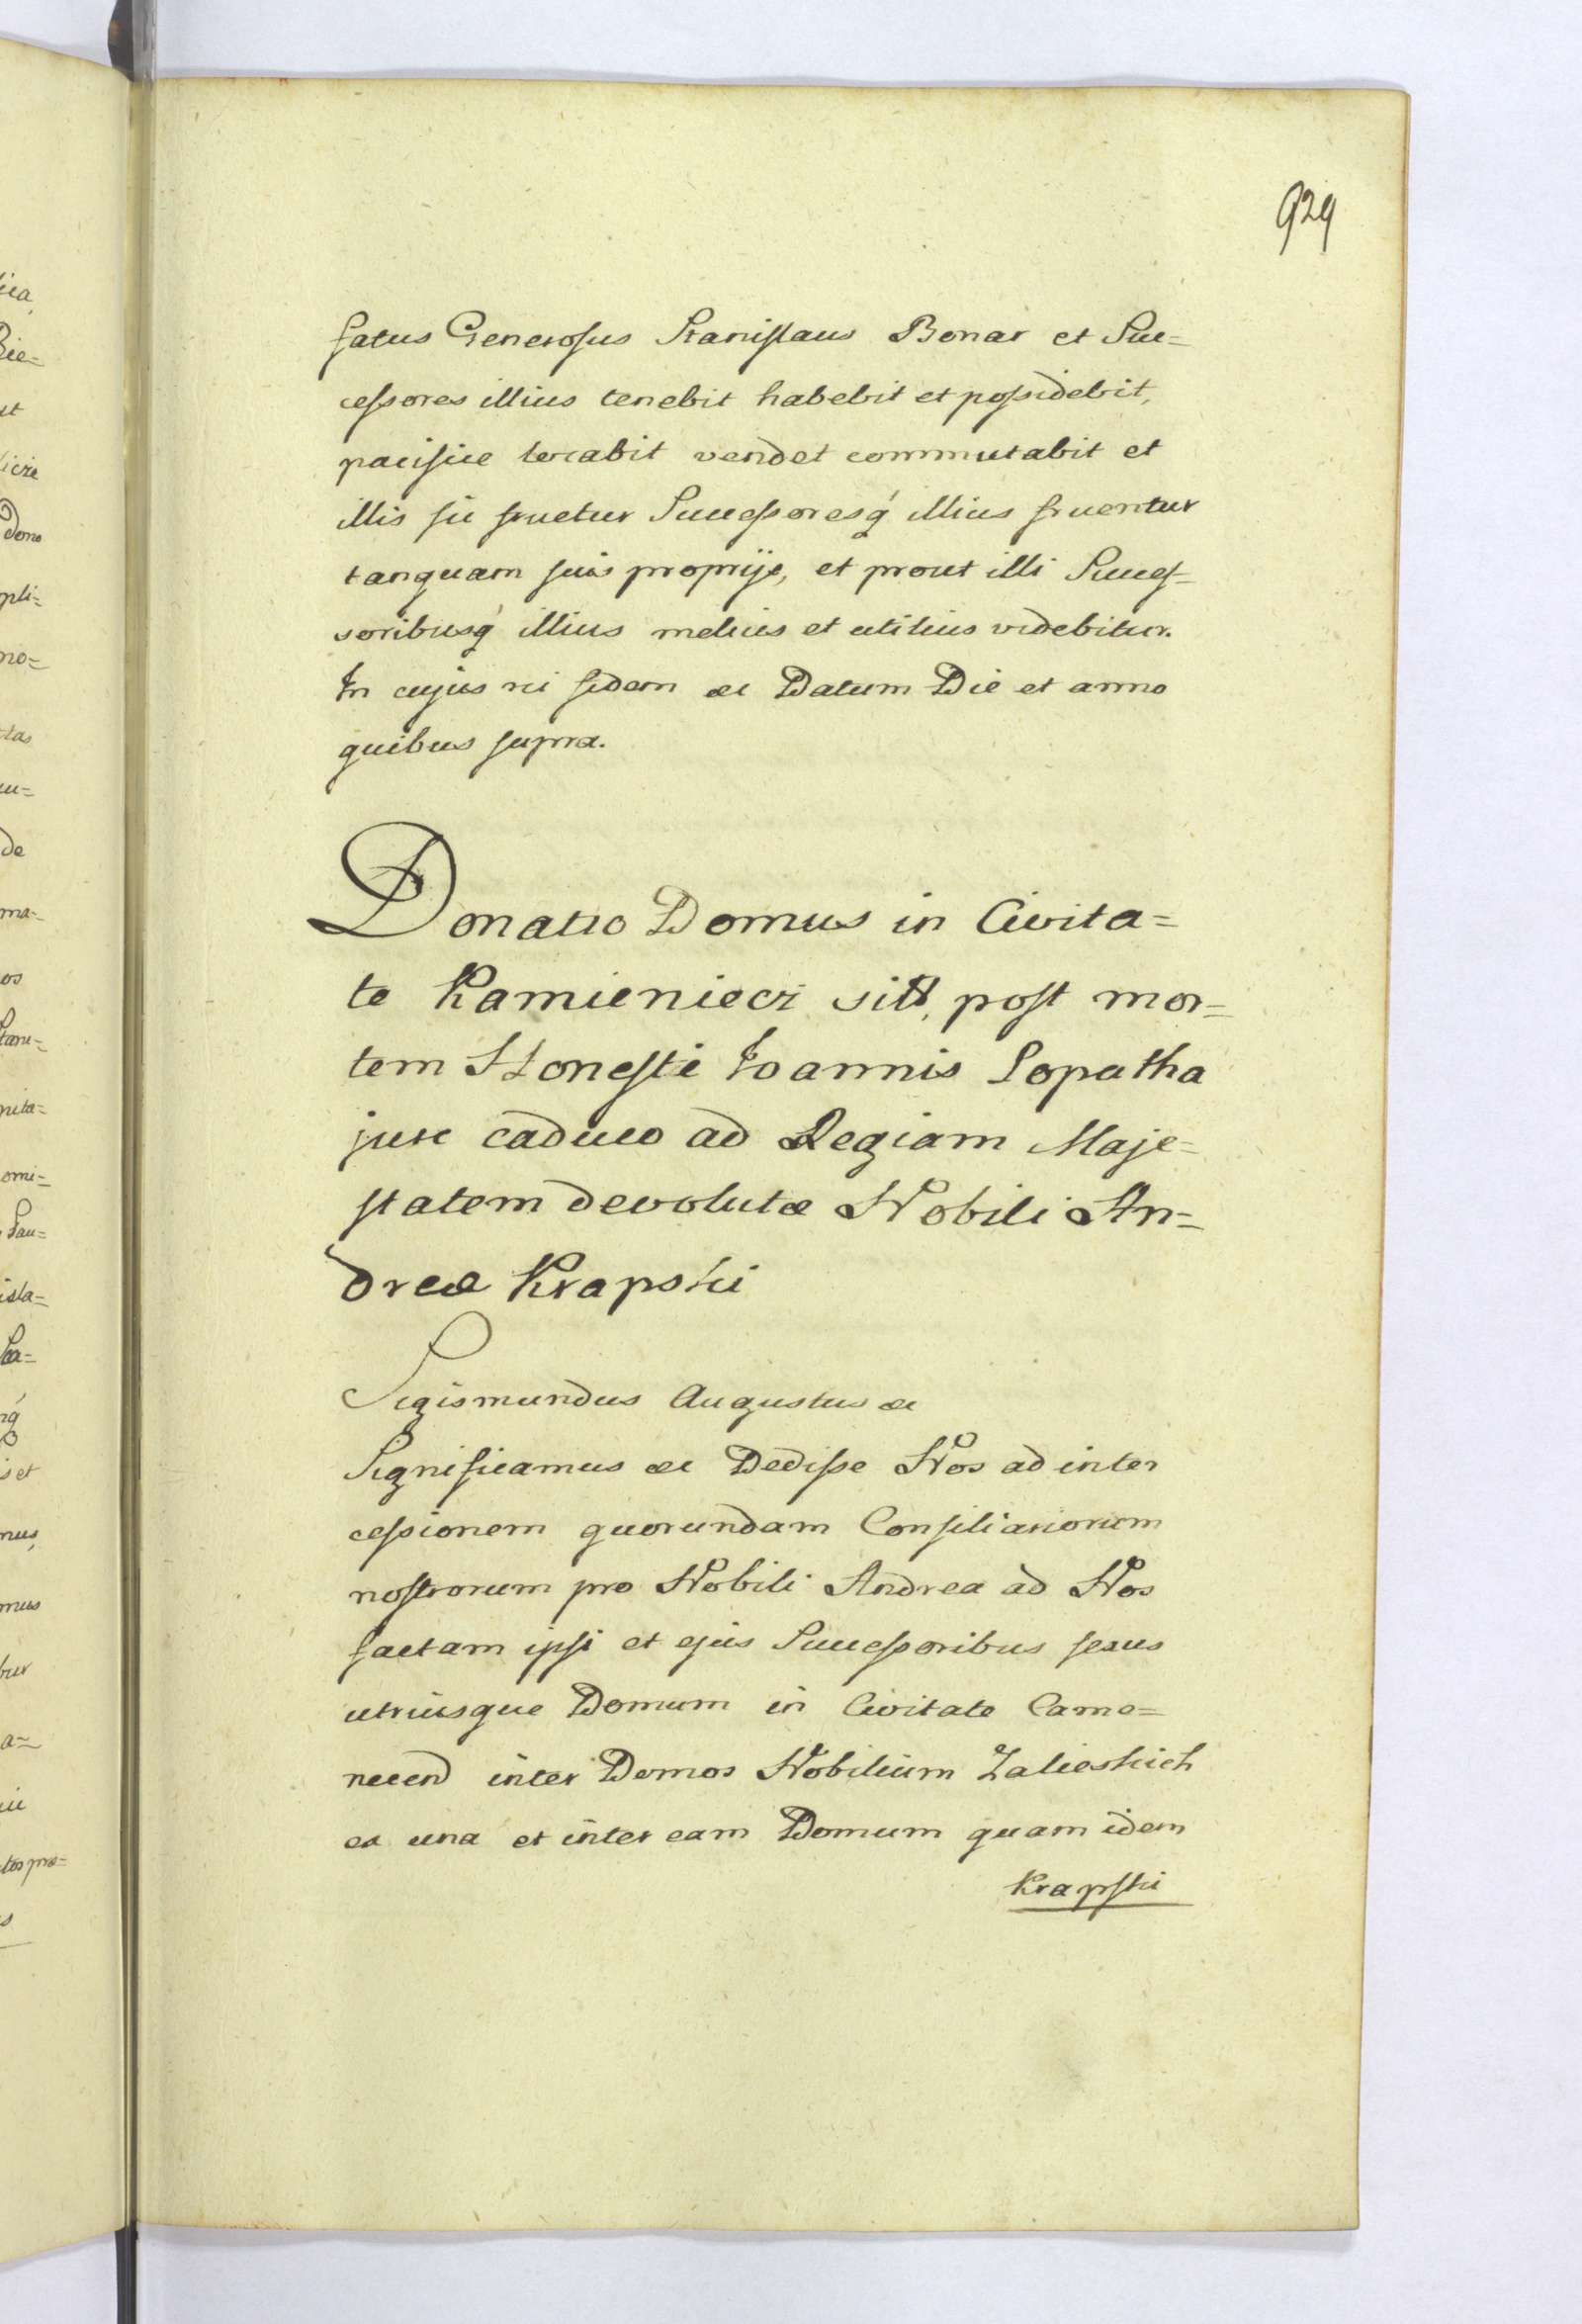 929
fatus Generosus Stanislaus Bonar et Suc=
cessores illius tenebit habebit et possidebit,
pacifice locabit vendet commutabit et
illis sic fruetur Successoresq́ illius fruentur
tanquam suis proprijs, et prout illi Succes=
soribusq́ illius melius et utilius videbitur.
In cujus rei fidem &c Datum Die et anno
quibus supra.
Donatio Domus in Civita=
te Kamieniecz sitæ, post mor=
tem Honesti Joannis Lopatha
jure caduco ad Regiam Maje=
statem devolutæ Nobili An=
dreæ Krapski
Sigismundus Augustus &c
Significamus &c Dedisse Nos ad inter
cessionem quorundam Consiliariorum
nostrorum pro Nobili Andrea ad Nos
factam ipsi et ejus Successoribus sexus
utriusque Domum in Civitate Came=
necen̄ inter Domos Nobilium Zalieskich
ex una et inter eam Domum quam idem
Krapski